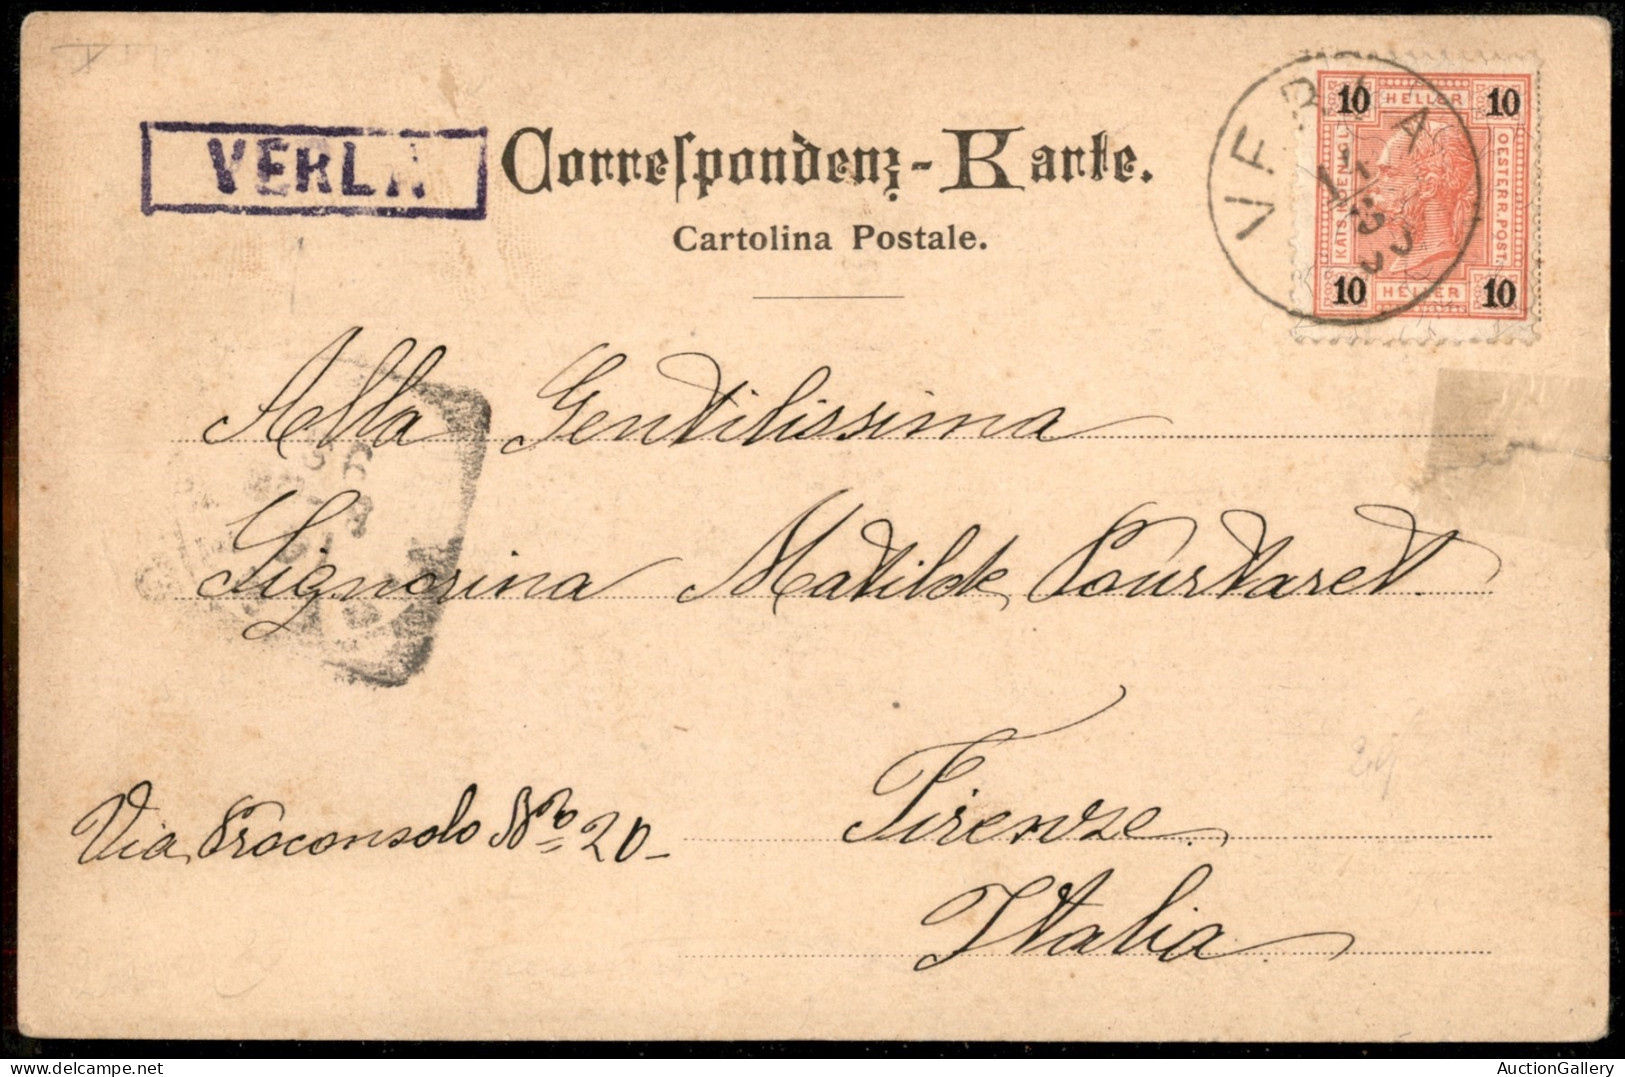 VERLA
Correspondenz-Karte.
Cartolina Postale.
VERLA
10 HELLER 10
KAIS. KOENIGL.
OESTERR. POST.
10 HELLER 10
Alla Gentilissima
Signorina Matilde Courtaret.
Via Proconsolo No 20-
Firenze
Italia
AuctionGallery